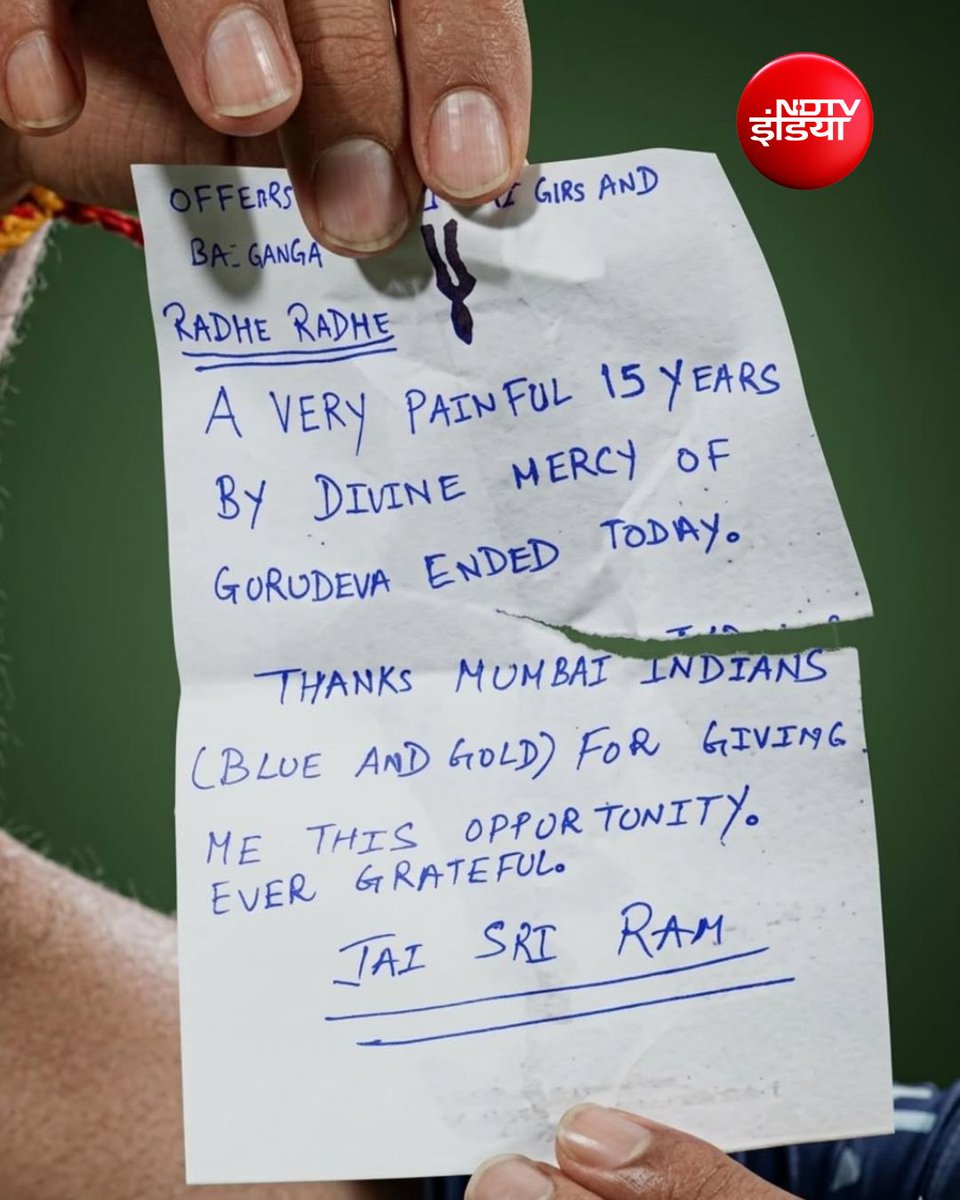 NDTV
इंडिया
OFFERS GIRS AND
GANGA
RADHE RADHE
A VERY PAINFUL 15 YEARS
BY DIVINE MERCY OF
GORUDEVA ENDED TODAY.
THANKS MUMBAI INDIANS
(BLUE AND GOLD) FOR GIVING
ME THIS OPPORTUNITY.
EVER GRATEFUL.
JAI SRI RAM